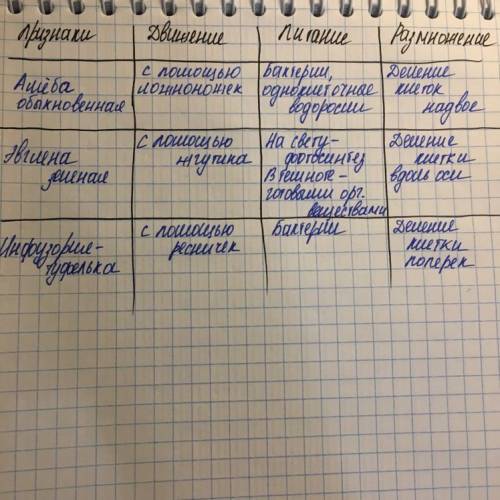 Признаки Движение Питание Размножение
Амёба обыкновенная
с помощью
ложноножек
Бактерии,
одноклеточные
водоросли
Деление
клеток
надвое
Эвглена
зеленая
с помощью
жгутика
На свету-
фотосинтез
В темноте-
готовыми орг.
веществами
Деление
клетки
вдоль оси
Инфузория-
туфелька
с помощью
ресничек
Бактерии
Деление
клетки
поперек